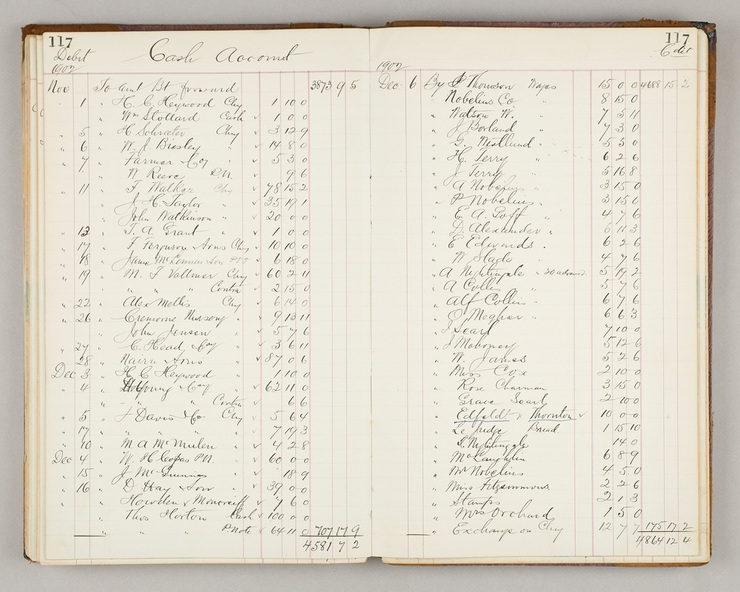 117
Debit Cash Account
1902
Nov To amt Bt forward 3873 9 5
1 " H. C. Heywood Chq 1 10 0
" Wm Stollard Cash 1 0 0
" 5 " H Schroeter Chq 3 12 9
" 6 " W. J. Biesley 14 8 0
" 7 " Farmer & Coy " 5 3 0
" N Reeve P.N. 9 6
" 11 " F. Walker Chq 78 15 2
" J. H. Taylor " 35 19 1
" John Watkinson " 20 0 0
" 13 " T. A. Grant " 1 0 0
" 17 " F. Ferguson & Sons Chq 10 10 0
" 18 " James McLennan 6 18 0
" 19 " M. F. Vollmer Chq 60 2 11
" " " Contra 2 15 0
" 22 " Alex Chq 6 14 0
" 26 " 9 13 11
" John Jensen " 5 7 6
" 27 " C. Head & Coy " 3 6 11
" 28 " Nairn & Sons 87 0 6
Dec 3 " H. C. Heywood 1 10 0
" 4 " Young & Coy " 62 11 0
" " " Contra 6 6
" 5 " J Davis & Co Chq 5 6 4
" 17 " " " 7 19 3
" 10 " M A McMullen " 4 2 8
Dec 4 " W. H. P.N. 60 0 0
" 15 " J. Mc 18 9
" 16 " D. Hay & Son " 39 0 0
" Howden & Moncrieff 4 6 0
" Thos Horton Cash 100 0 0
" " " P Note 64 11 0 707 17 9
4581 7 2
117
Cdit
1902
Dec 6 By J Thomson Wages 15 0 0 4688 15 2
" Nobelius Co " 8 15 0
" Watson W. " 7 5 11
" J Borland " 7 3 0
" G. Westlund " 5 5 0
" H. Terry " 6 2 6
" J Terry " 5 16 8
" A Nobelius " 3 15 0
" P Nobelius " 3 15 0
" E. A. Goff " 4 7 6
" D. Alexander " 6 11 3
" E Edwards " 6 2 6
" W Slade " 4 7 6
" A Nightingale " 5 19 2
" A Collin " 5 7 6
" Alf Collin " 6 7 6
" J Meagher " 6 6 3
" J Searl 7 10 0
" J Mahoney 5 12 6
" W. James 5 2 6
" Miss Cox 2 10 0
" Rose Charman 3 15 0
" Grace Searl 2 10 0
" Edfeldt & Thornton 10 0 0
" Le Judge Bread 1 15 10
" S. Nightingale 14 0
" McLaughlin 6 8 9
" Mr Nobelius 4 5 0
" Miss Fitzsimmons 2 2 6
" Stamps 2 1 3
" Mrs Orchard 1 5 0
" Exchange on Chq 12 7 7 175 17 2
4864 12 4